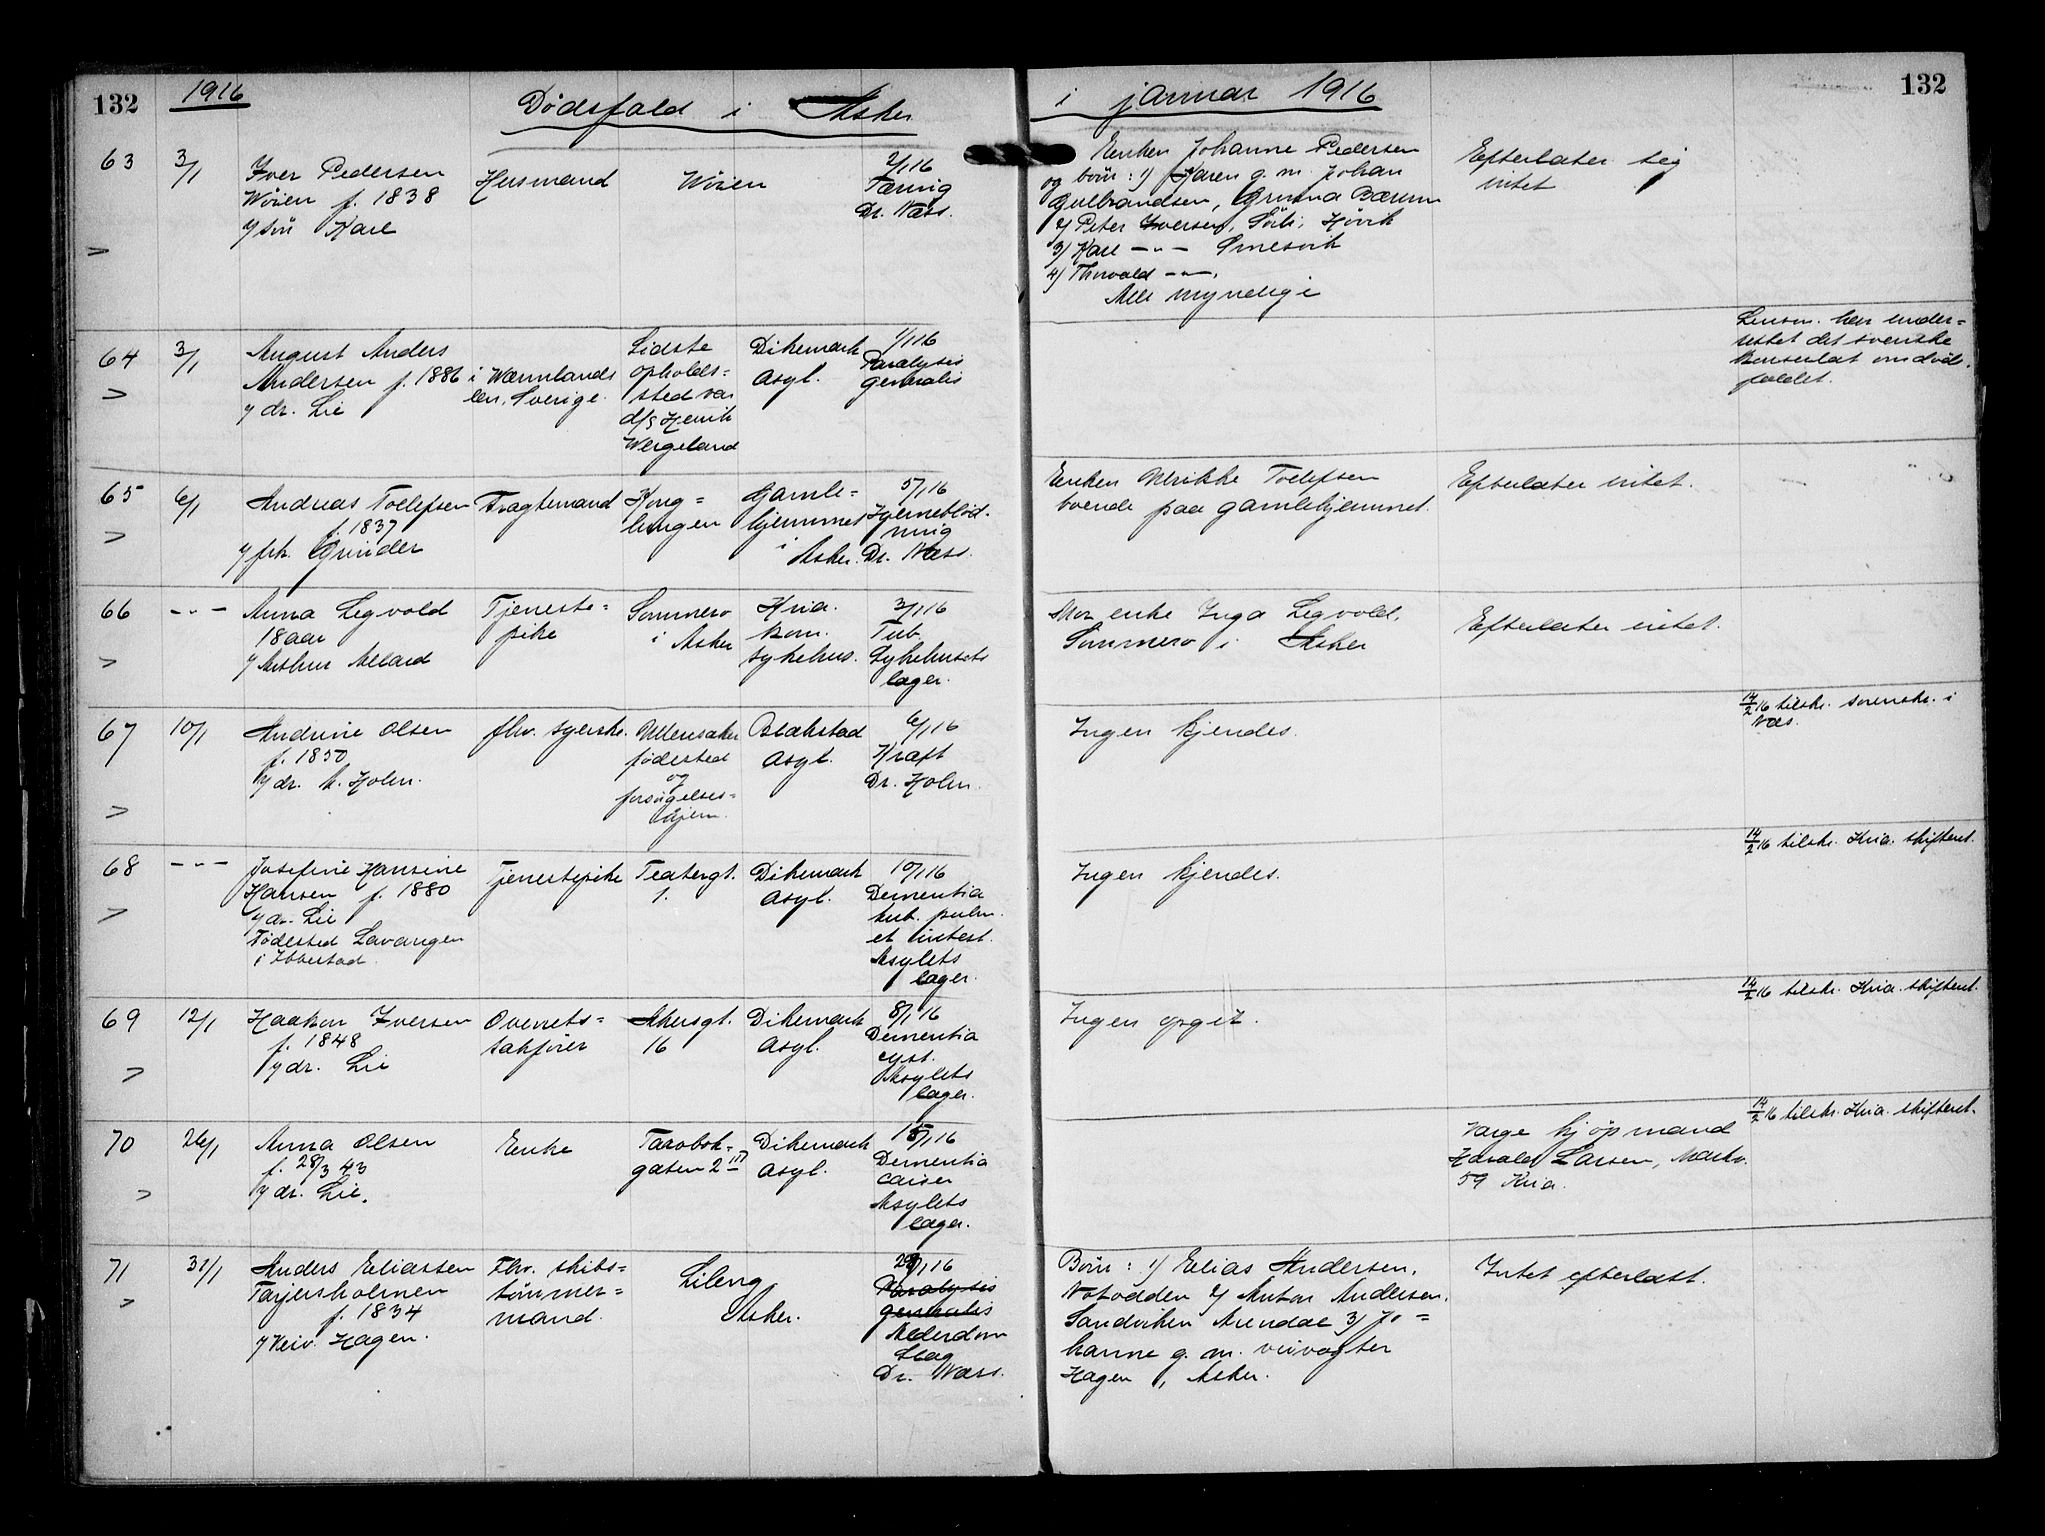 132
1916
Dødsfald i Asker
i januar 1916
132
63
3/1
Iver Pedersen
Wøien f. 1838
v/ søn Karl
Husmand
Wøien
2/1 16
Tæring
Dr. Næss.
Enken Johanne Pedersen
og børn: 1) Karen g. m. Johan
Gulbrandsen, Grinna Bærum
2) Peter Iversen, Høvik
3) Karl -"-
4) Thorvald -"-
Alle myndige
Efterlater sig
intet
64
3/1
August Anders
Andersen f. 1886
v/ dr. Lie
i Wærmlands
len, Sverige.
Sidste
opholds=
sted var
d/s Henrik
Wergeland
Dikemark
Asyl.
1/1 16
Paralysis
generalis
Lensm. har under=
rettet det svenske
Konsulat om døds=
faldet.
65
6/1
Andreas Tollefsen
f. 1837
v/ frk. Grinder
Fragtemand
Kong=
lungen
Gamle=
hjemmet
i Asker.
5/1 16
Hjerneblød-
ning
Dr. Næss.
Enken Ulrikke Tollefsen
boende paa gamlehjemmet.
Efterlater intet.
66
-"-
Anna Legvold
18 aar
v/ Arthur Allard
Tjeneste=
pike
Sommero
i Asker
Kria.
kom.
sykehus.
3/1 16
Tub.
Sykehusets
læger.
Mor enke Inga Legvold,
Sommero i Asker
Efterlater intet.
67
10/1
Andrine Olsen
f. 1850
v/ dr. h. Holm.
fhv. syerske.
Ullensaker
fødested
og
forsørgelses=
hjem.
Blakstad
Asyl.
6/1 16
Kræft
Dr. Holm.
Ingen kjendes.
14/2 16 tilskr. sorenskr. i
Næs.
68
-"-
Josefine Hansine
Hansen f. 1880
v/ dr. Lie
Fødested Lavangen
i Ibbestad.
Tjenestepike
Teatergt.
1.
Dikemark
Asyl.
10/1 16
Dementia
tub. pulm.
et intest.
Asylets
læger.
Ingen kjendes.
14/2 16 tilskr. Kria. skifteret.
69
12/1
Haakon Iversen
f. 1848
v/ dr. Lie
Overrets=
sakfører
Akersgt.
16
Dikemark
Asyl.
8/1 16
Dementia
Asylets
læger.
Ingen opgit.
14/2 16 tilskr. Kria. skifteret.
70
26/1
Anna Olsen
f. 28/3 43
v/ dr. Lie.
Enke
gaten 2 III
Dikemark
Asyl.
15/1 16
Dementia
Asylets
læger.
Værge kjøpmand
Harald Larsen, Markv.
59 Kria.
14/2 16 tilskr. Kria. skifteret.
71
31/1
Anders Eliassen
Tarjersholmen
f. 1834
v/ Veiv. Hagen.
Fhv. skibs=
tømmer=
mand.
Lileng
Asker.
1 16
Paralysis
generalis
Alderdom
Slag
Dr. Næss.
Børn: 1) Elias Andersen,
Notodden 2) Anton Andersen,
Sandviken Arendal 3) Jo=
hanne g. m. veivogter
Hagen, Asker.
Intet efterladt.